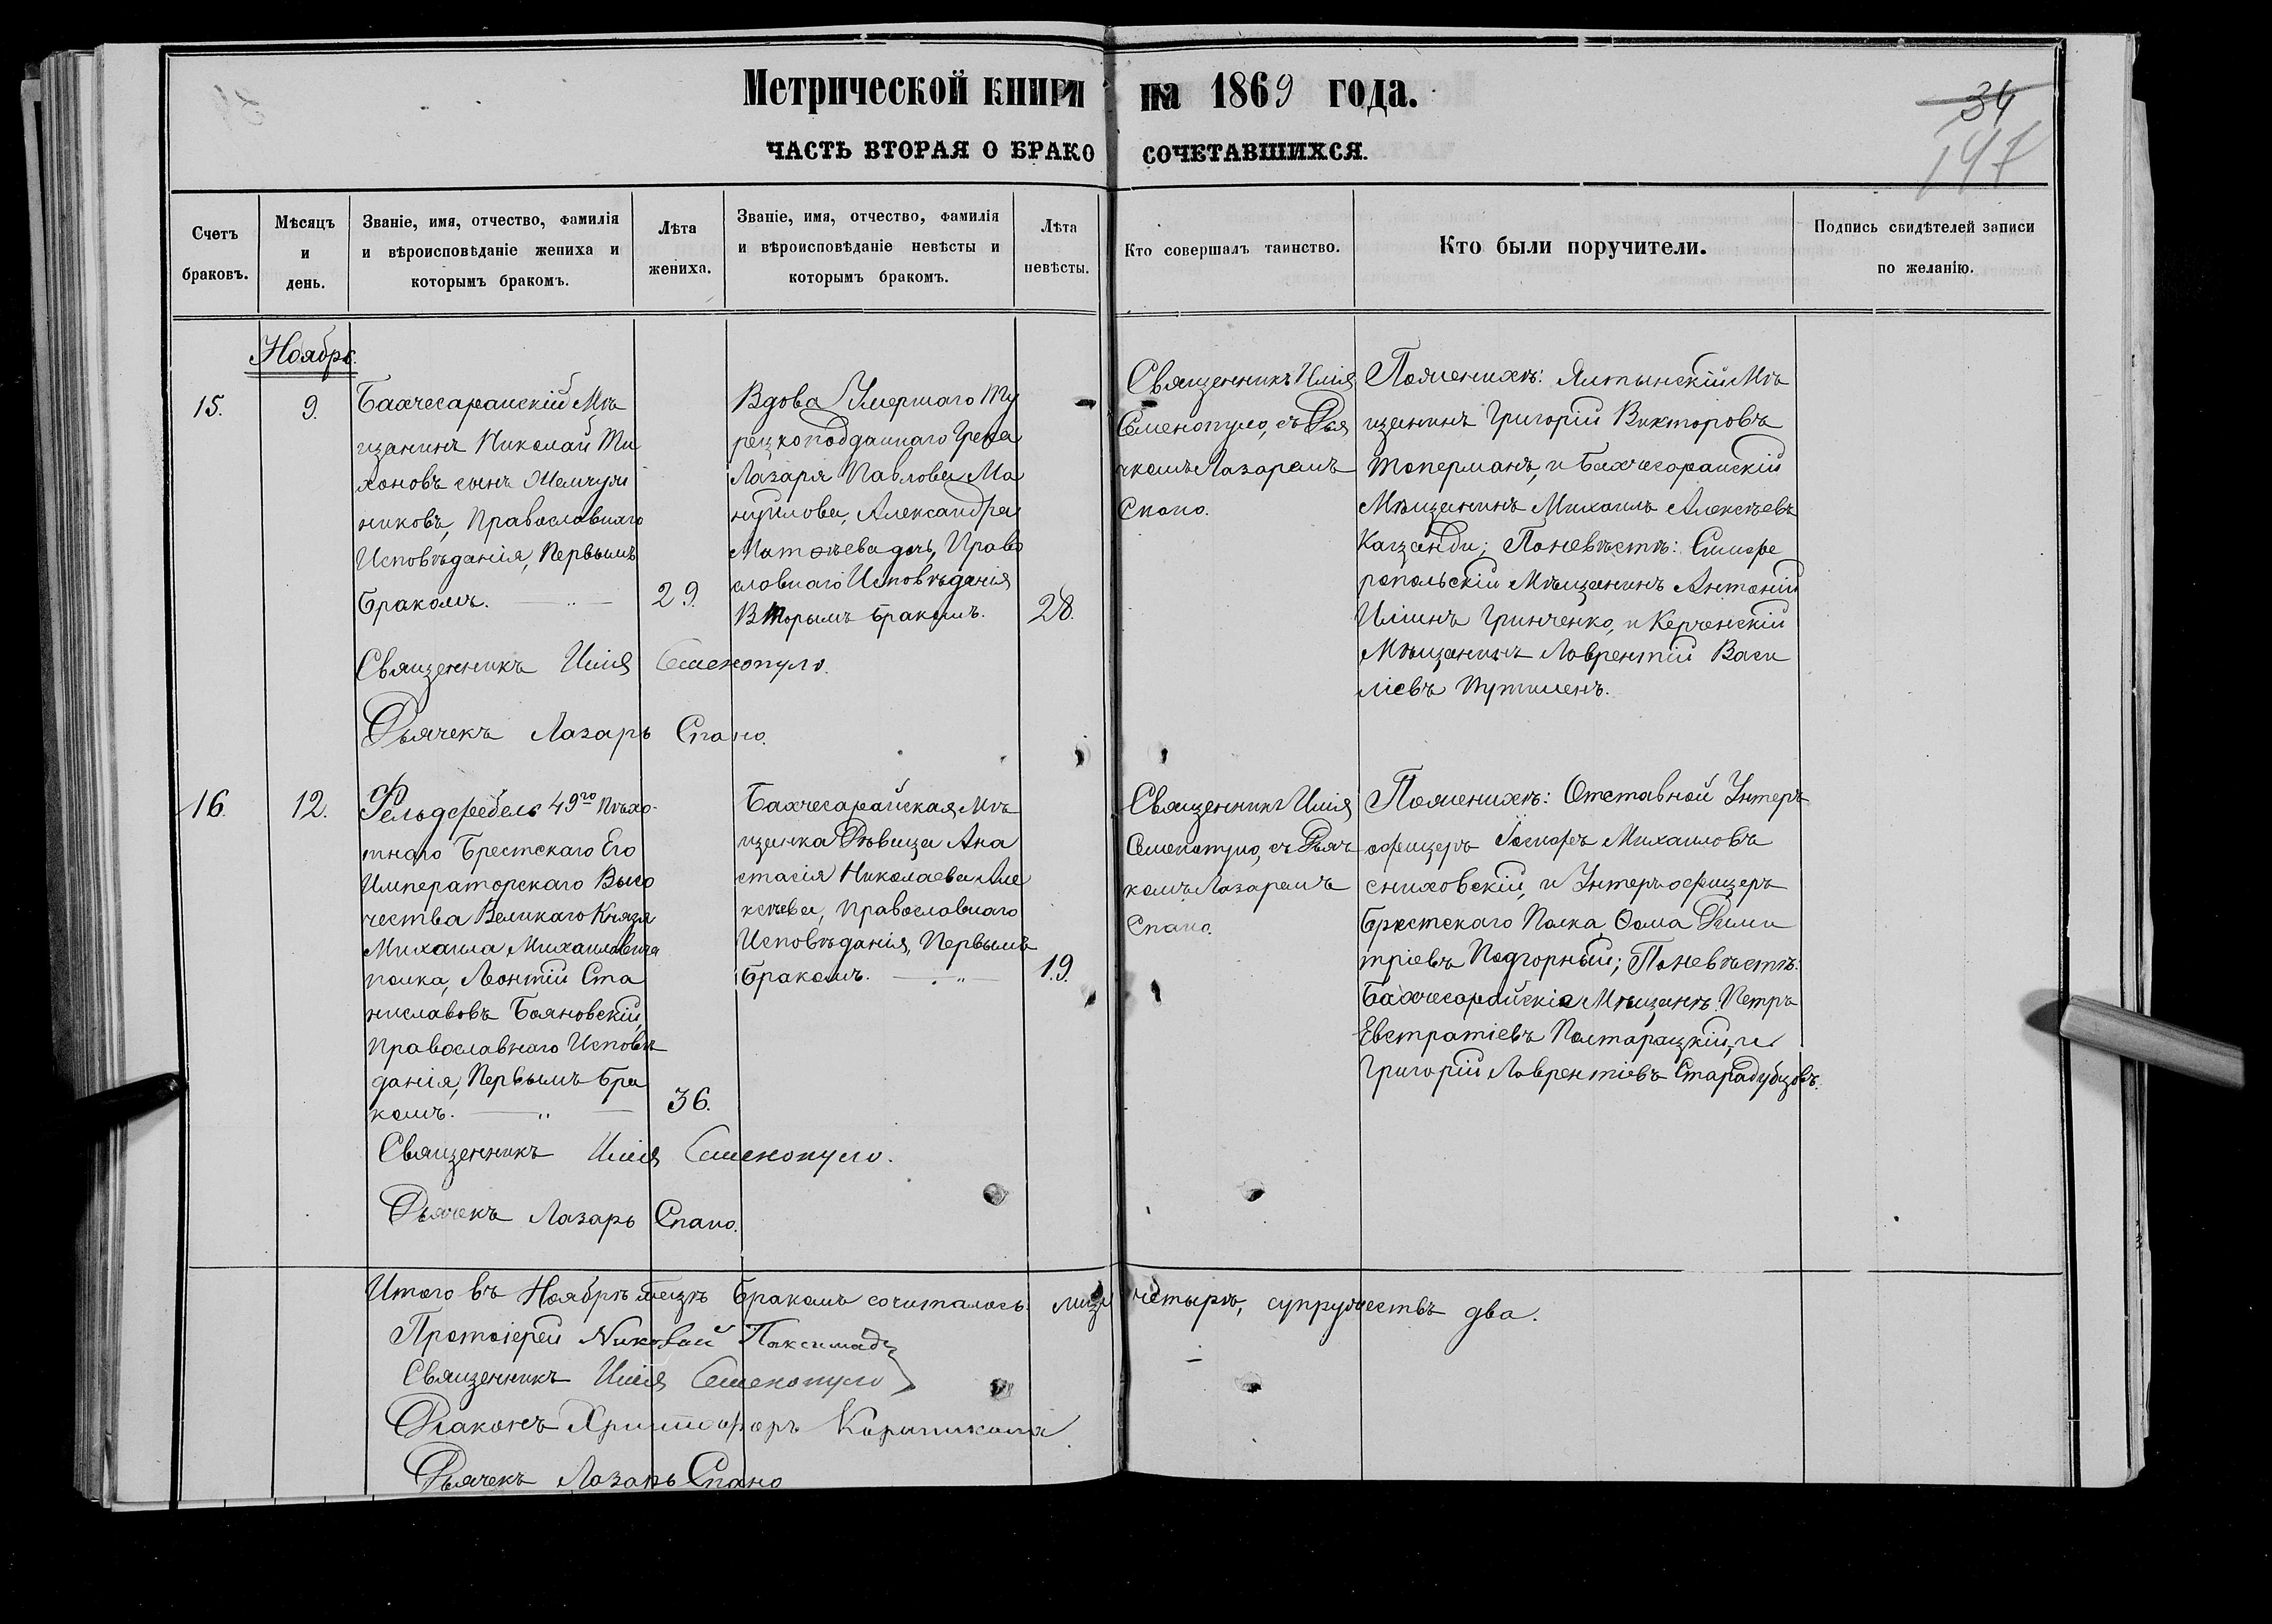 Метрической книги на 1869 года.
34
147
ЧАСТЬ ВТОРАЯ О БРАКОСОЧЕТАВШИХСЯ.
Счетъ
браковъ.
Мѣсяцъ
и
день.
Званіе, имя, отчество, фамилія
и вѣроисповѣданіе жениха и
которымъ бракомъ.
Лѣта
жениха.
Званіе, имя, отчество, фамилія
и вѣроисповѣданіе невѣсты и
которымъ бракомъ.
Лѣта
невѣсты.
Кто совершалъ таинство.
Кто были поручители.
Подпись свидѣтелей записи
по желанію.
Ноябрь.
15.
9.
Бахчесарайскій Мѣ
щанинъ Николай Ти
хоновъ сынъ Жемчуж
никовъ, Православнаго
Исповѣданія, Первымъ
Бракомъ.
29.
Вдова Умершаго Ту
рецкоподданнаго Грека
Лазаря Павлова Ма
нуйлова, Александра
Матѳѣева дочь, Право
славнаго Исповѣданія
Вторымъ Бракомъ.
28.
Священникъ Илія
Семенопуло, съ Дья
чкомъ Лазаремъ
Спано.
По женихѣ: Ялтынскій Мѣ
щанинъ Григорій Викторовъ
Топерманъ, и Бахчесарайскій
Мѣщанинъ Михаилъ Алексѣевъ
По невѣстѣ: Симфе
ропольскій Мѣщанинъ Антоній
Ильинъ Гринченко, и Керченскій
Мѣщанинъ Лаврентій Васи
ліевъ
Священникъ Илія Семенопуло.
Дьячекъ Лазарь Спано.
16.
12.
Фельдфебель 49го Пѣхо-
тнаго Брестскаго Его
Императорскаго Высо
чества Великаго Князя
Михаила Михаиловича
полка, Леонтій Ста
ниславовъ Бояновскій,
Православнаго Исповѣ
данія, Первымъ Бра
комъ.
36.
Бахчесарайская Мѣ
щанка Дѣвица Ана
стасія Николаева Але
ксѣева, Православнаго
Исповѣданія, Первымъ
Бракомъ.
19.
Священникъ Илія
Семенопуло, съ Дьяч
комъ Лазаремъ
Спано.
По женихѣ: Отставной Унтеръ
офицеръ Іосифъ Михаиловъ
сниховскій, и Унтеръ офицеръ
Брестскаго Полка Ѳома Дими
тріевъ Подгорный; По невѣстѣ:
Бахчесарайскіе Мѣщане: Петръ
Евстратіевъ Полторацкій, и
Григорій Лаврентіевъ Стародубцовъ.
Священникъ Илія Семенопуло.
Дьячекъ Лазарь Спано.
Итого въ Ноябрѣ мѣсяцѣ Бракомъ сочиталось лицъ четыре, супружествъ два.
Протоіерей Николай Паксимадъ
Священникъ Илія Семенопуло
Діаконъ Христофоръ
Дьячекъ Лазарь Спано